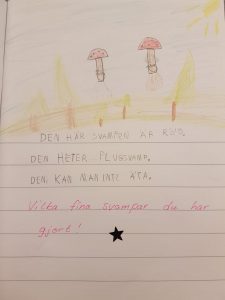 DEN HÄR SVAMPEN ÄR RÖD.
DEN HETER FLUGSVAMP.
DEN KAN MAN INTE ÄTA.
Vilka fina svampar du har
gjort!